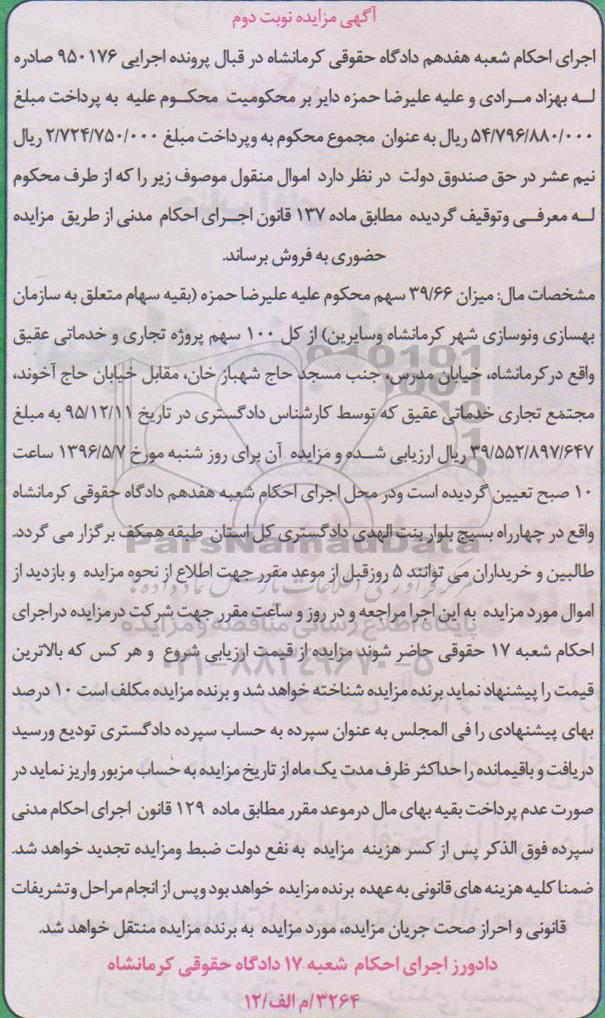 آگهی مزایده نوبت دوم
اجرای احکام شعبه هفدهم دادگاه حقوقی کرمانشاه در قبال پرونده اجرایی ۹۵۰۱۷۶ صادره
لـه بهزاد مـرادی و علیه علیرضا حمزه دایر بر محکومیت محکـوم علیه به پرداخت مبلغ
۵۴/۷۹۶/۸۸۰/۰۰۰ ریال به عنوان مجموع محکوم به وپرداخت مبلغ ۲/۷۲۴/۷۵۰/۰۰۰ ریال
نیم عشر در حق صندوق دولت در نظر دارد اموال منقول موصوف زیر را که از طرف محکوم
لـه معرفـی وتوقیف گردیده مطابق ماده ۱۳۷ قانون اجـرای احکام مدنی از طریق مزایده
حضوری به فروش برساند.
مشخصات مال: میزان ۳۹/۶۶ سهم محکوم علیه علیرضا حمزه (بقیه سهام متعلق به سازمان
بهسازی ونوسازی شهر کرمانشاه وسایرین) از کل ۱۰۰ سهم پروژه تجاری و خدماتی عقیق
واقع درکرمانشاه، خیابان مدرس، جنب مسجد حاج شهباز خان، مقابل خیابان حاج آخوند،
مجتمع تجاری خدماتی عقیق که توسط کارشناس دادگستری در تاریخ ۹۵/۱۲/۱۱ به مبلغ
۳۹/۵۵۲/۸۹۷/۶۴۷ ریال ارزیابی شـده و مزایده آن برای روز شنبه مورخ ۱۳۹۶/۵/۷ ساعت
۱۰ صبح تعیین گردیده است ودر محل اجرای احکام شعبه هفدهم دادگاه حقوقی کرمانشاه
واقع در چهارراه بسیج بلوار بنت الهدی دادگستری کل استان طبقه همکف برگزار می گردد.
ParsNamadData
طالبین و خریداران می توانند ۵ روزقبل از موعد مقرر جهت اطلاع از نحوه مزایده و بازدید از
اموال مورد مزایده به این اجرا مراجعه و در روز و ساعت مقرر جهت شرکت درمزایده دراجرای
پایگاه اطلاع رسانی مناقصه و مزایده
احکام شعبه ۱۷ حقوقی حاضر شوند مزایده از قیمت ارزیابی شروع و هر کس که بالاترین
۰۲۱-۸۸۳۴۹۶۷۰-۵
قیمت را پیشنهاد نماید برنده مزایده شناخته خواهد شد و برنده مزایده مکلف است ۱۰ درصد
بهای پیشنهادی را فی المجلس به عنوان سپرده به حساب سپرده دادگستری تودیع ورسید
دریافت و باقیمانده را حداکثر ظرف مدت یک ماه از تاریخ مزایده به حساب مزبور واریز نماید در
صورت عدم پرداخت بقیه بهای مال درموعد مقرر مطابق ماده ۱۲۹ قانون اجرای احکام مدنی
سپرده فوق الذکر پس از کسر هزینه مزایده به نفع دولت ضبط ومزایده تجدید خواهد شد.
ضمنا کلیه هزینه های قانونی به عهده برنده مزایده خواهد بود وپس از انجام مراحل وتشریفات
قانونی و احراز صحت جریان مزایده، مورد مزایده به برنده مزایده منتقل خواهد شد.
دادورز اجرای احکام شعبه ۱۷ دادگاه حقوقی کرمانشاه
۳۲۶۴/م الف/۱۲